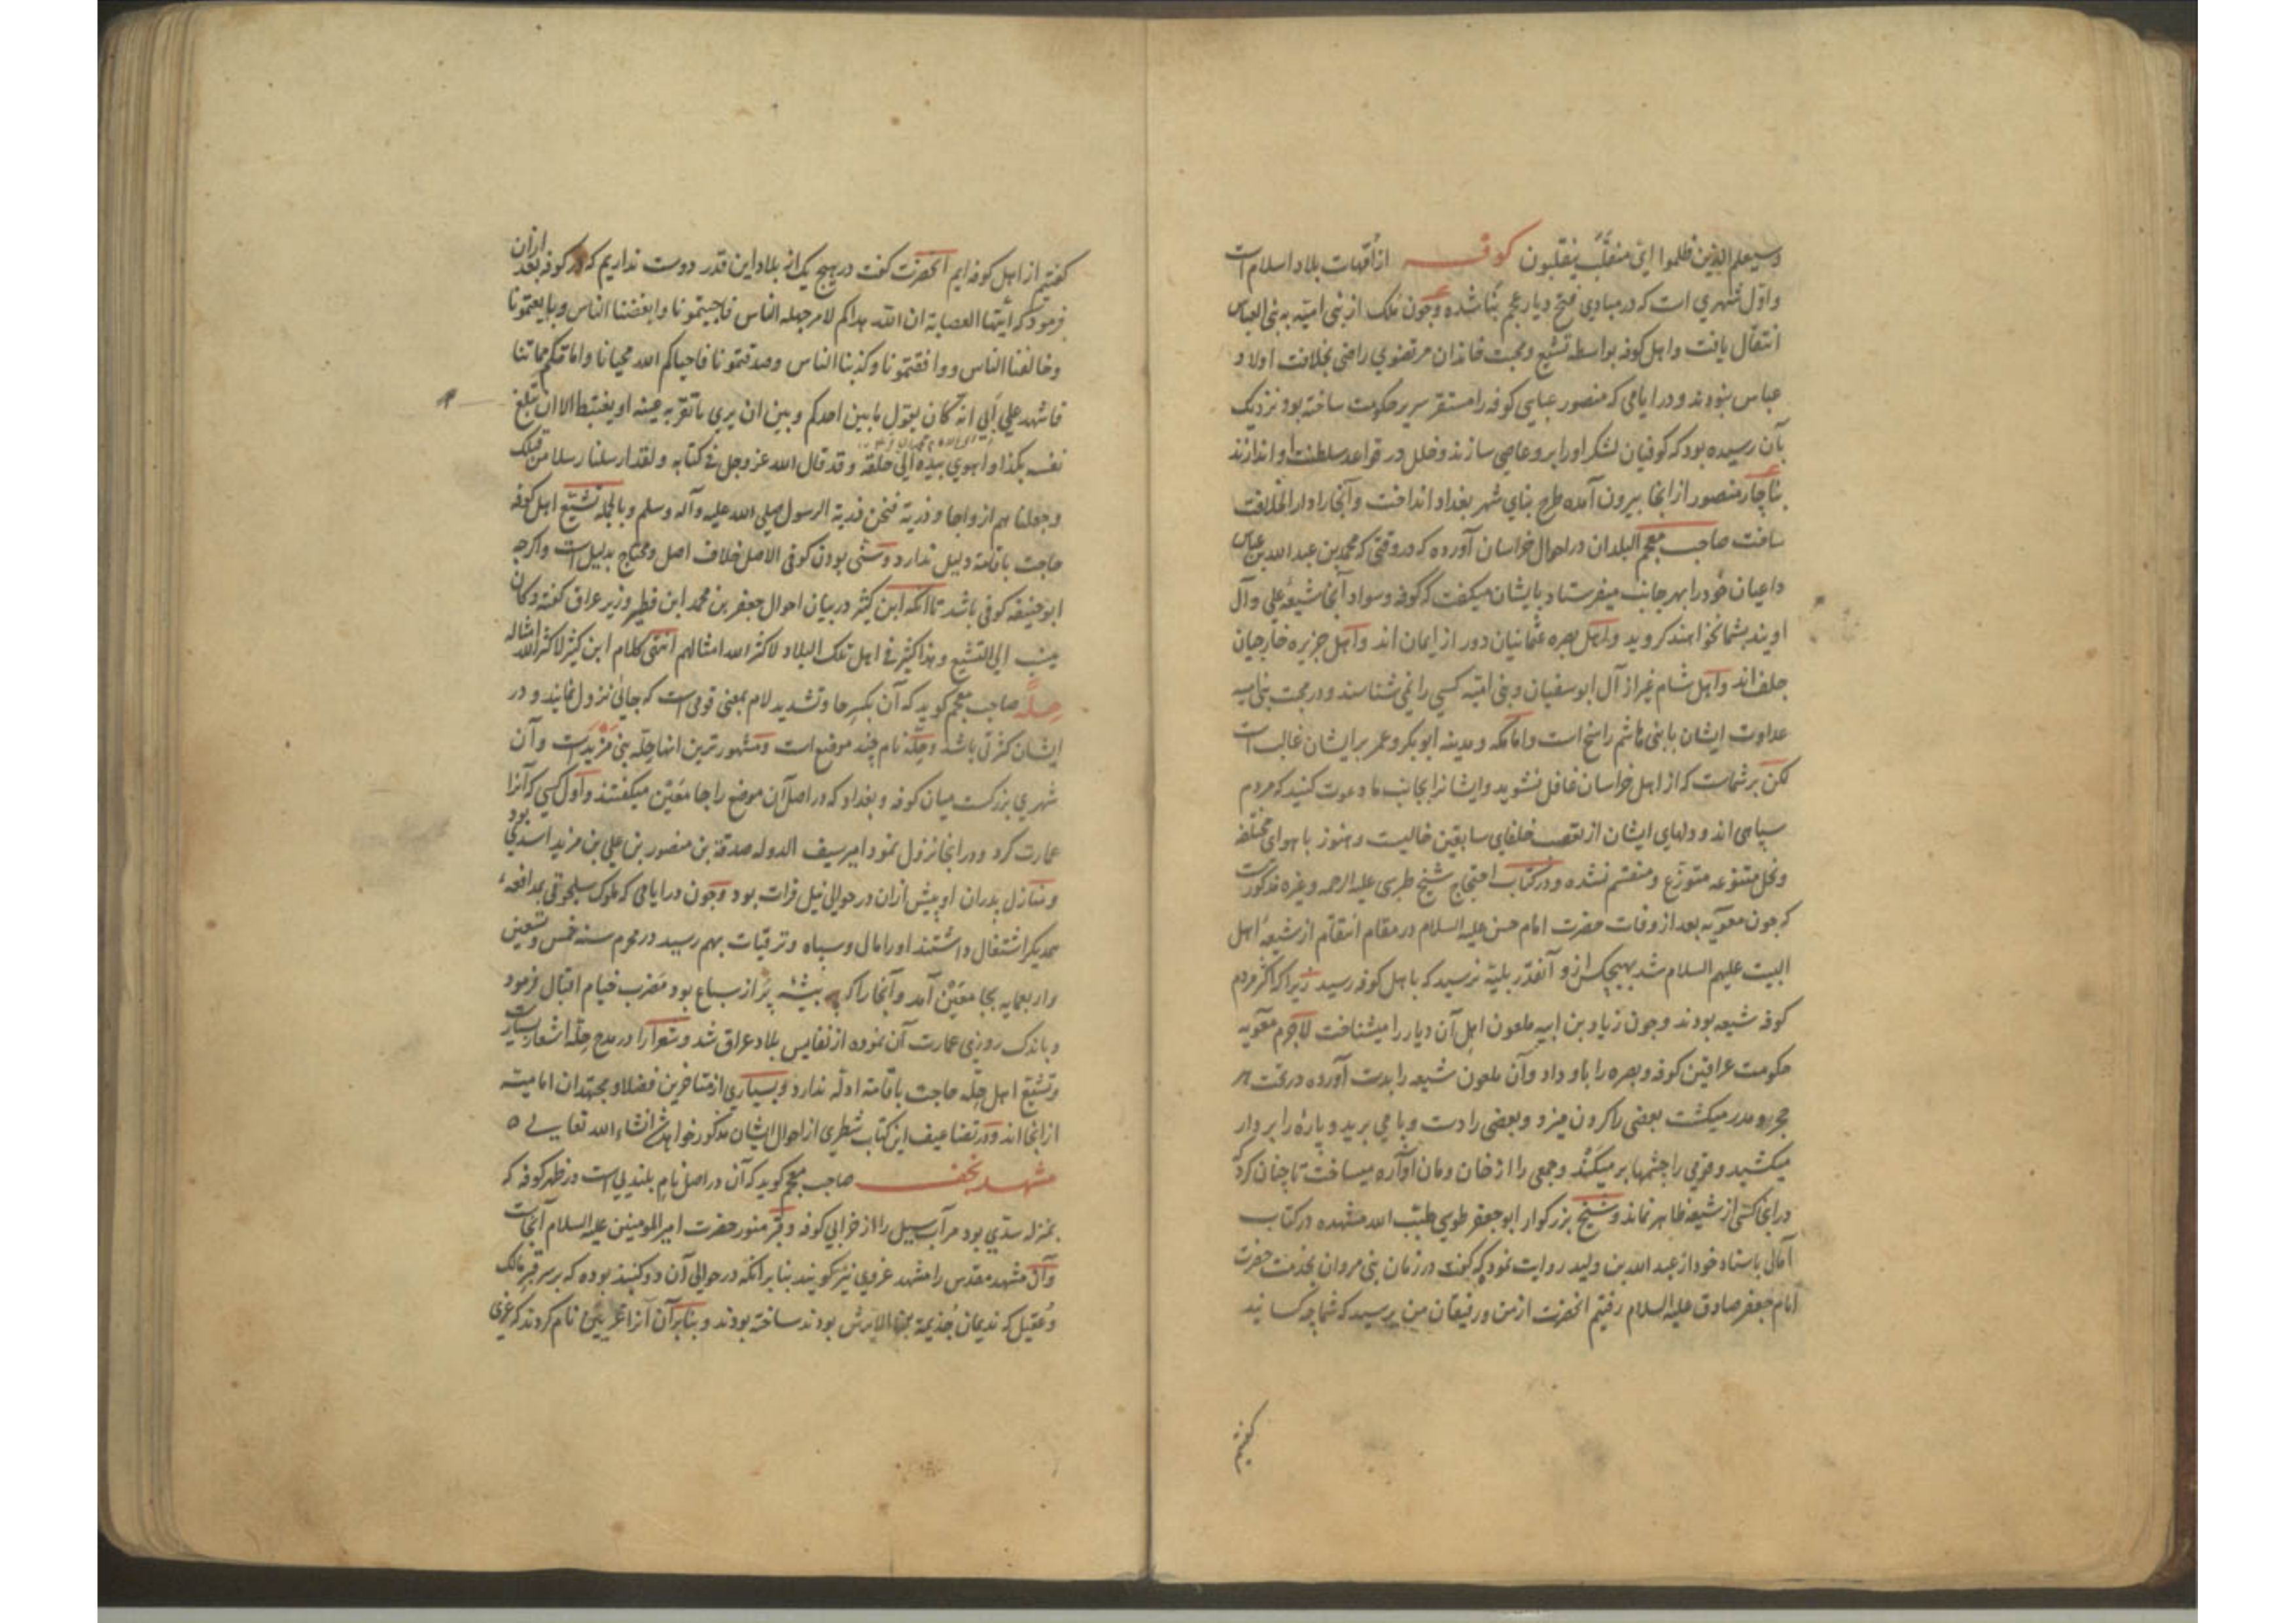 وسیعلم الذین ظلموا ای منقلب ینقلبون کوفه از امهات بلاد اسلام است
و اول شهری است که در مبادی فتح دیار عجم بنا شده و چون ملک از بنی امیه به بنی العباس
انتقال یافت و اهل کوفه بواسطه تشیع و محبت خاندان مرتضوی راضی بخلافت اولاد
عباس نبودند و در ایامی که منصور عباسی کوفه را مستقر سریر حکومت ساخته بود نزدیک
بآن رسیده بود که کوفیان لشکر او را برو عاصی سازند و خلل در قواعد سلطنت او اندازند
بناچار منصور از آنجا بیرون آمده طرح بنای شهر بغداد انداخت و آنجا را دار الخلافت
ساخت صاحب معجم البلدان در احوال خراسان آورده که در وقتی که محمد بن عبد الله بن عباس
داعیان خود را بهر جانب میفرستاد بایشان میگفت که کوفه و سواد آنجا شیعه علی و آل
اویند بشما نخواهند گروید و اهل بصره عثمانیان دور از ایمان اند و اهل جزیره خارجیان
جلف اند و اهل شام غیر از آل ابو سفیان و بنی امیه کسی را نمی شناسند و در محبت بنی امیه
عداوت ایشان با بنی هاشم راسخ است و اما مکه و مدینه ابو بکر و عمر بر ایشان غالب است
لکن بر شماست که از اهل خراسان غافل نشوید و ایشانرا بجانب ما دعوت کنید که مردم
سپاهی اند و دلهای ایشان از تعصب خلفای سابقین خالیست و هنوز با هوای مختلفه
و نحل متنوعه متوزع و منقسم نشده و در کتاب احتجاج شیخ طبرسی علیه الرحمه و غیره مذکورست
که چون معویه بعد از وفات حضرت امام حسن علیه السلام در مقام انتقام از شیعه اهل
البیت علیهم السلام شد بهیچکس از و آنقدر بلیه نرسید که باهل کوفه رسید زیرا که اکثر مردم
کوفه شیعه بودند و چون زیاد بن ابیه ملعون اهل آن دیار را میشناخت لاجرم معویه
حکومت عراقین کوفه و بصره را باو داد و آن ملعون شیعه را بدست آورده در تحت هر
حجر و مدر میکشت بعضی را گردن میزد و بعضی را دست و پا می برید و پاره را بر دار
میکشید و قومی را چشمها بر میکند و جمعی را از خان و مان آواره میساخت تا چنان کرد
در آنجا کسی از شیعه ظاهر نماند و شیخ بزرگوار ابو جعفر طوسی طیب الله مشهده در کتاب
آمالی باسناد خود از عبد الله بن ولید روایت نمود که گفت در زمان بنی مروان بخدمت حضرت
امام جعفر صادق علیه السلام رفتیم آنحضرت از من و رفیقان من پرسید که شما چه کسانید
گفتیم
گفتم از اهل کوفه ایم آنحضرت گفت در هیچ یک از بلاد این قدر دوست نداریم که در کوفه بعد از آن
فرمود که ایتها العصابة ان الله هداکم لامر جهله الناس فاجبتمونا و ابغضنا الناس و بایعتمونا
و خالفنا الناس و وافقتمونا و کذبنا الناس و صدقتمونا فاحیاکم الله محیانا و اماتکم مماتنا
فاشهد علی ابی انه کان یقول ما بین احدکم و بین ان یری ما تقر به عینه او یغتبط الا ان تبلغ
نفسه هکذا و اهوی بیده الی حلقه و قد قال الله عز وجل فی کتابه و لقد ارسلنا رسلا من قبلک
وجعلنا لهم ازواجا و ذریة فنحن ذریة الرسول صلی الله علیه و آله و سلم و بالجمله تشیع اهل کوفه
حاجت باقامة دلیل ندارد و سنی بودن کوفی الاصل خلاف اصل و محتاج بدلیل است و اگرچه
ابو حنیفه کوفی باشد تا آنکه ابن کثیر در بیان احوال جعفر بن محمد ابن فطیر وزیر عراق گفته و کان
ینسب الی التشیع و هذا کثیر فی اهل تلک البلاد لا کثر الله امثالهم انتهی کلام ابن کثیر لا کثر الله امثاله
حله صاحب معجم گوید که آن بکسر حا و تشدید لام بمعنی قومی است که جائی نزول نمایند و در
ایشان کثرتی باشد و حله نام چند موضع است و مشهور ترین آنها حله بنی مزیدست و آن
شهری بزرگست میان کوفه و بغداد که در اصل آن موضع را جامعین میگفتند و اول کسی که آنرا
عمارت کرد و در آنجا نزول نمود امیر سیف الدوله صدقة بن منصور بن علی بن مزید اسدی بود
و منازل پدران او پیش از آن در حوالی نیل فرات بود و چون در ایامی که ملوک سلجوقی بمدافعه
همدیگر اشتغال داشتند او را مال و سپاه و ترقیات بهم رسید در محرم سنه خمس و تسعین
و اربعمایه بجامعین آمد و آنجا را که بیشه پر از سباع بود مضرب خیام اقبال فرمود
و باندک روزی عمارت آن نموده از نفایس بلاد عراق شد و شعرا را در مدح حله اشعار بسیارست
و تشیع اهل حله حاجت باقامة ادله ندارد و بسیاری از متاخرین فضلا و مجتهدان امامیه
از آنجا اند و در تضاعیف این کتاب شطری از احوال ایشان مذکور خواهد شد انشاء الله تعالی ه
مشهد نجف صاحب معجم گوید که آن در اصل نام بلندیی است در ظهر کوفه که
بمنزله سدی بود مر آب سیل را از خرابی کوفه و قبر منور حضرت امیر المومنین علیه السلام آنجاست
و آن مشهد مقدس را مشهد غروی نیز گویند بنا بر آنکه در حوالی آن دو گنبد بوده که بر سر قبر مالک
و عقیل که ندیمان جذیمة الابرش بودند ساخته بودند و بنا بر آن آنرا غریین نام کردند که غری